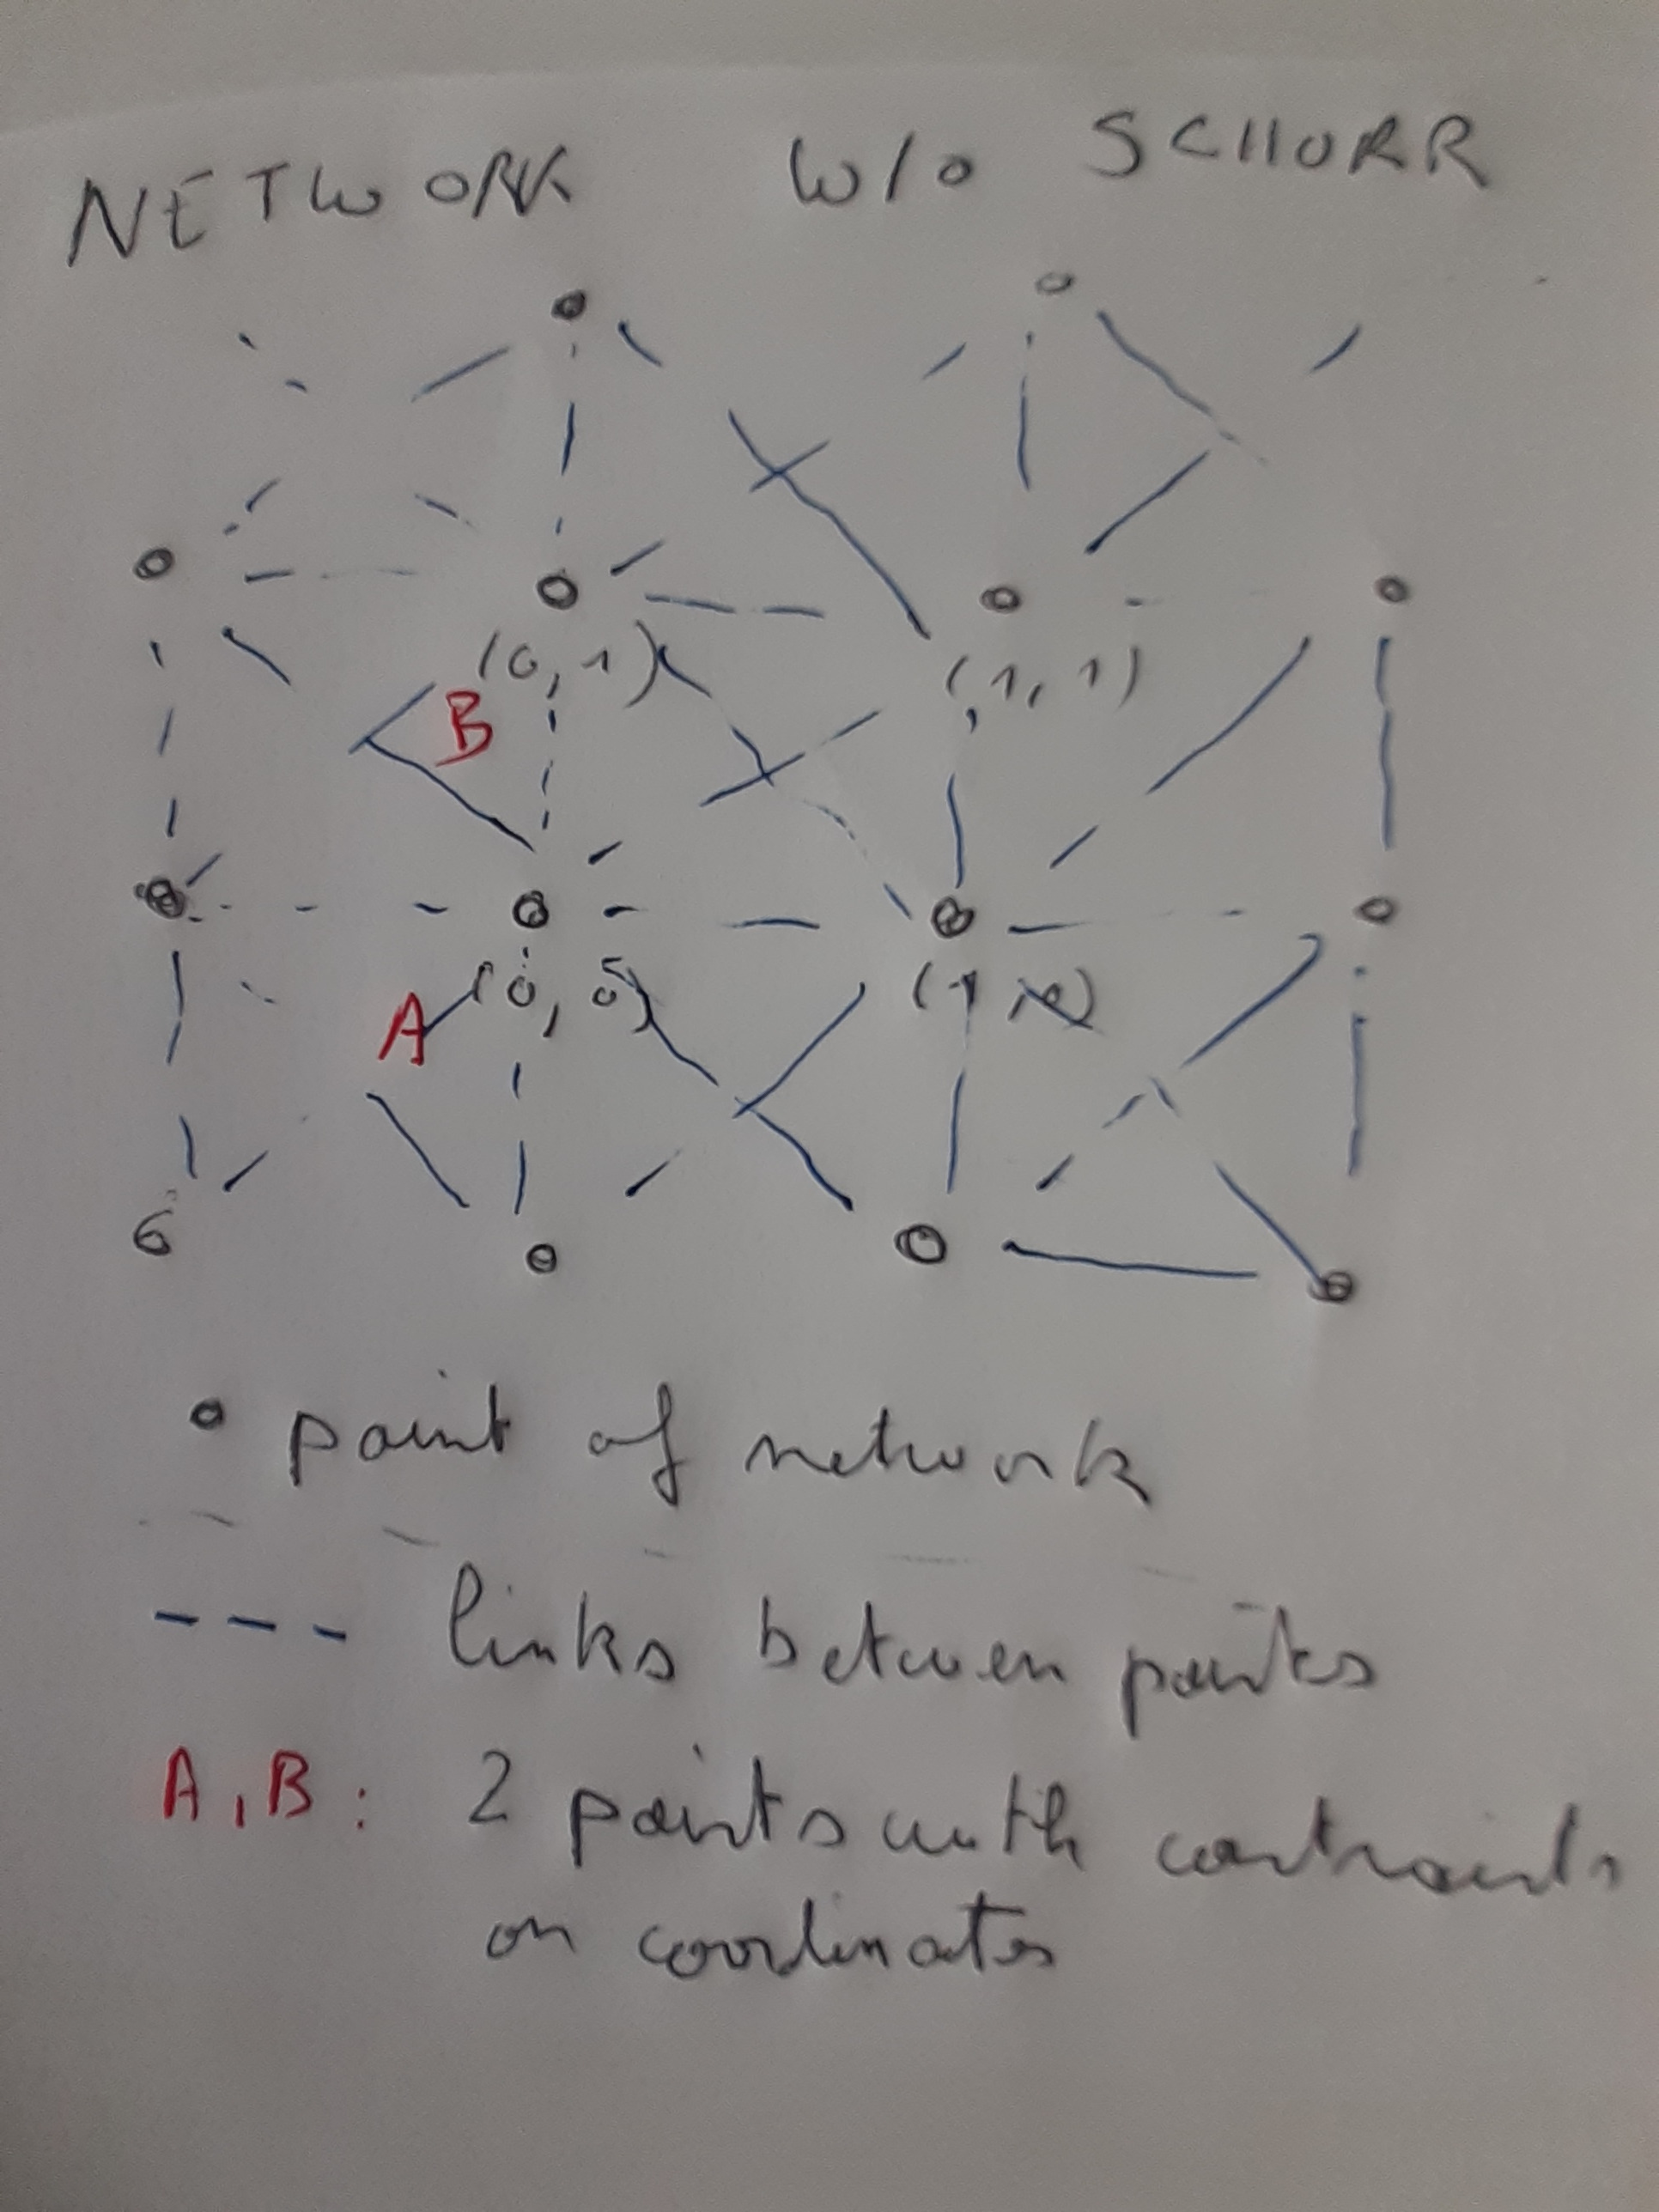 NETWORK W/O SCHURR
(0,1) (1,1)
B
(0,0)
A
point of network
links between points
A, B: 2 points with contraints
on coordinates